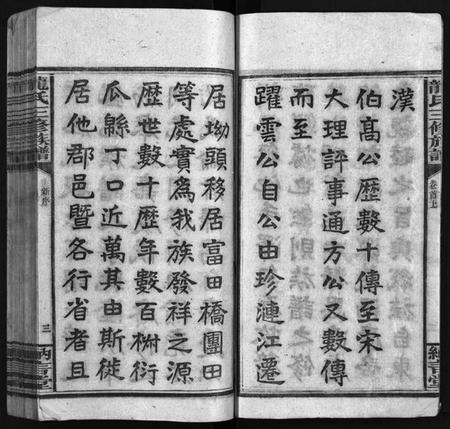 龍氏三修族譜
卷首上
納言堂
漢
伯高公歷數十傳至宋
大理評事通方公又數傳
而至
躍雲公自公由珍漣江遷
居坳頭移居富田橋團田
等處實爲我族發祥之源
歷世數十歷年數百椒衍
瓜緜丁口近萬其由斯徙
居他郡邑暨各行省者且
龍氏三修族譜
新序
三
納言堂